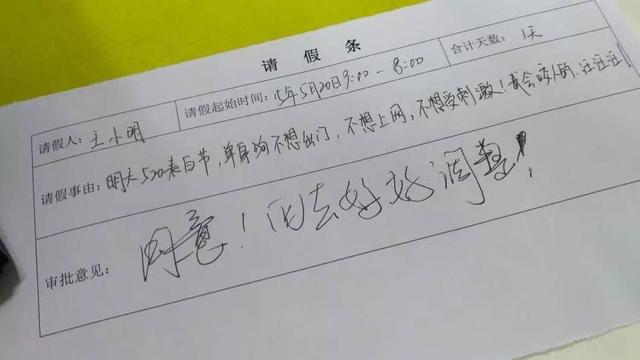 请假条
请假人： 王小明 请假起始时间：15年5月20日9:00-8:00 合计天数： 1天
请假事由： 明天520表白节，单身狗不想出门，不想上网，不想受刺激！我会咬人的，汪汪汪！
审批意见： 同意！回去好好调整！